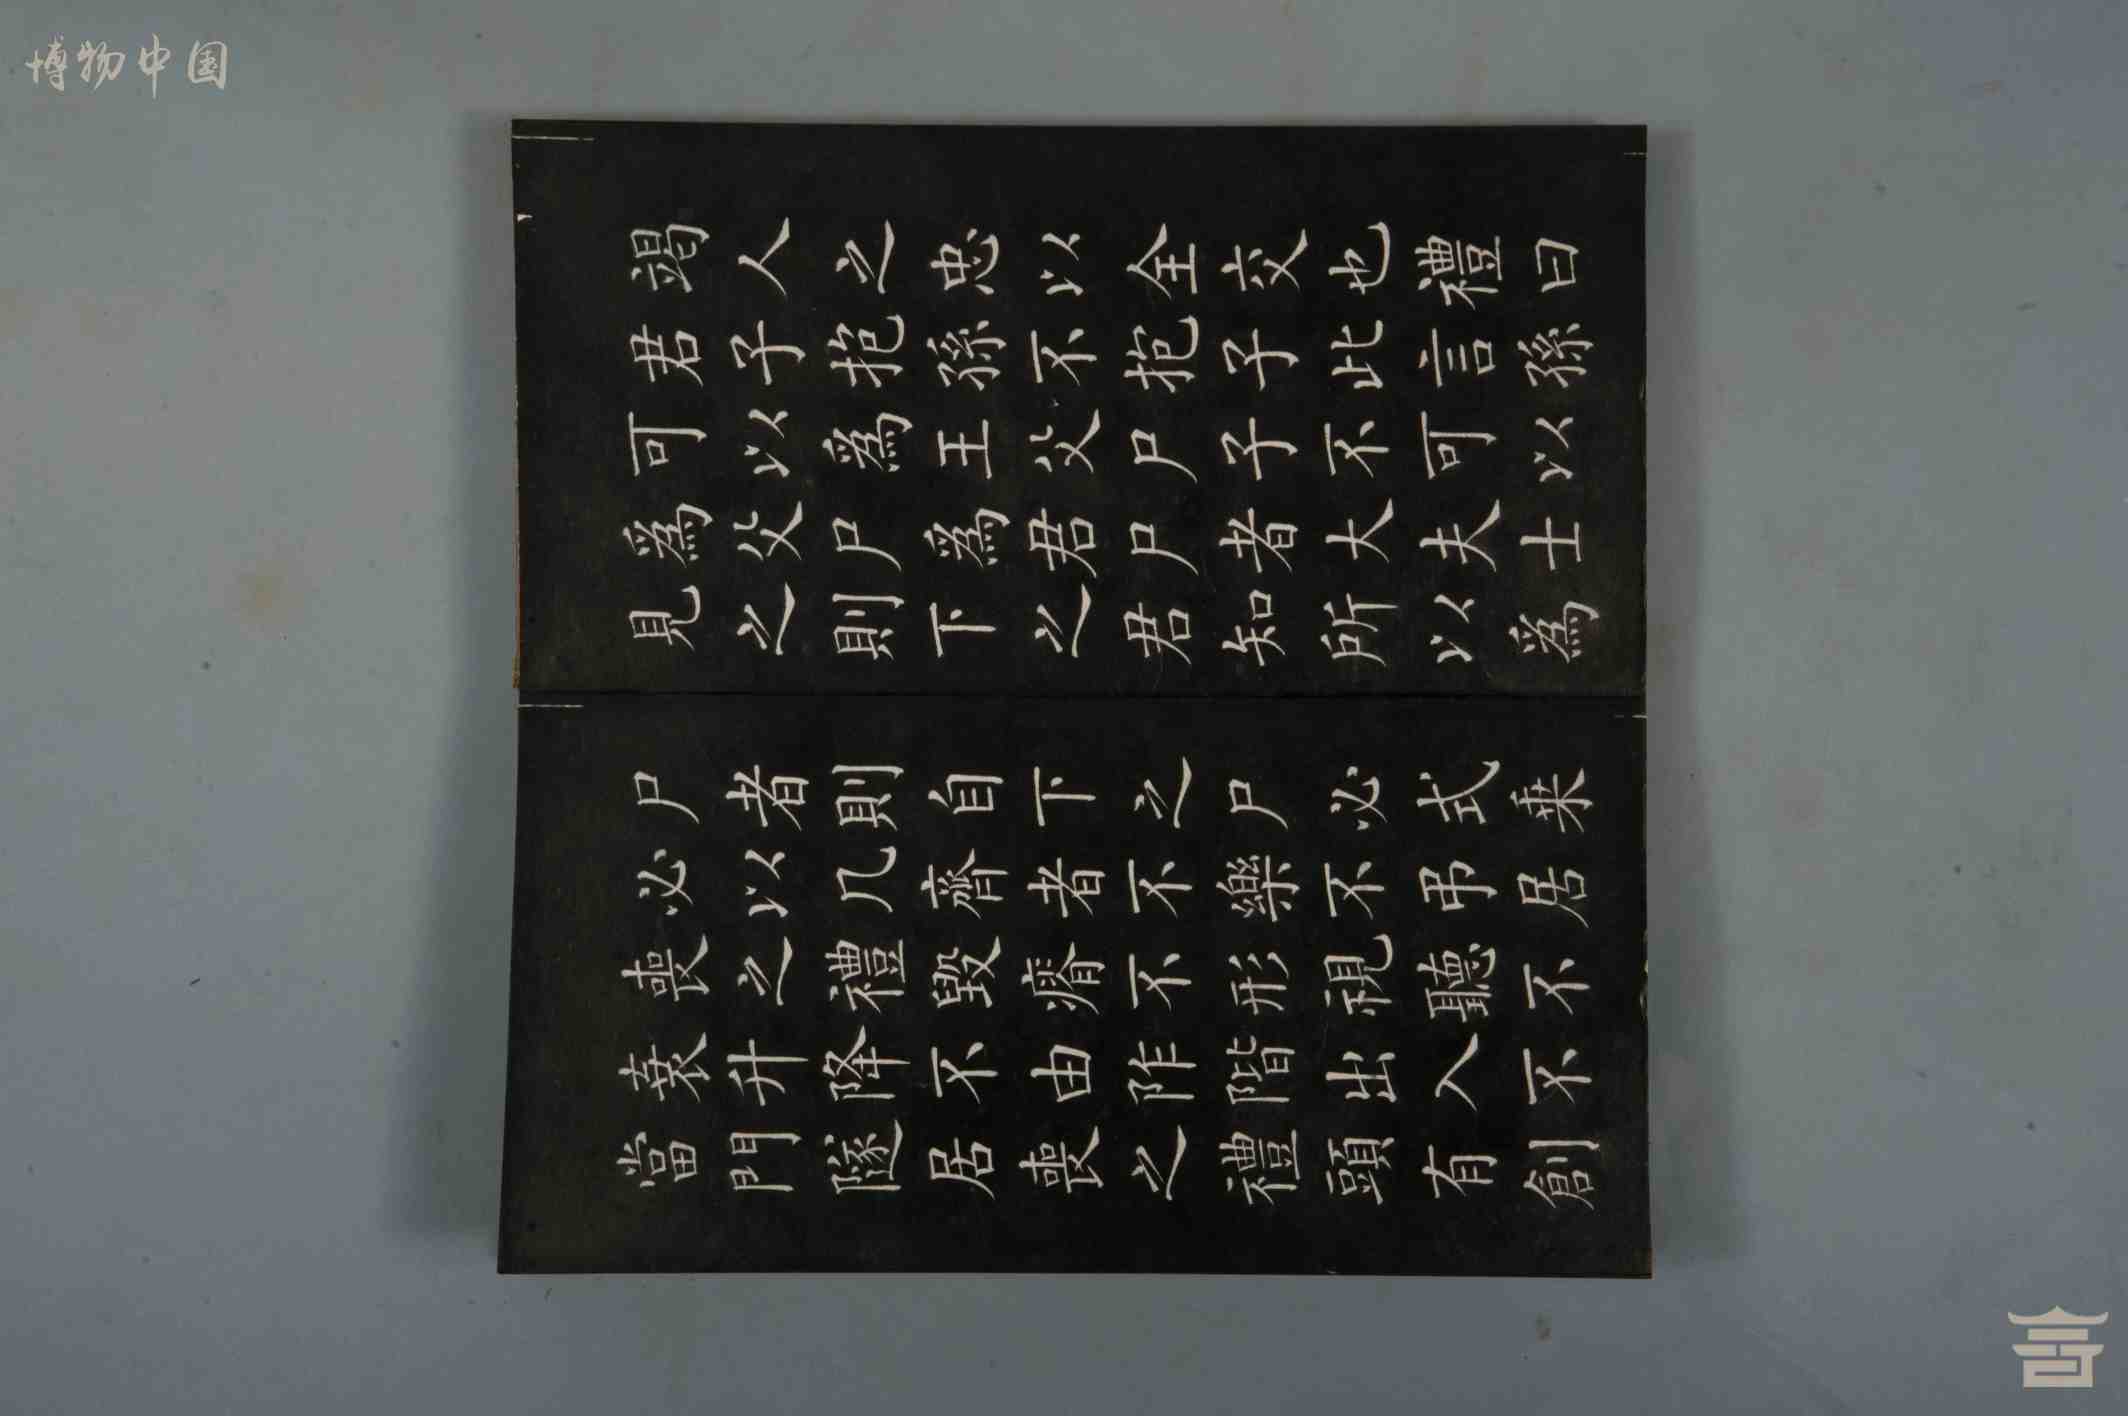 竭人之忠以全交也禮曰
君子抱孫不抱子此言孫
可以爲王父尸子不可以
爲父尸爲君尸者大夫士
見之則下之君知所以爲
尸者則自下之尸必式乘
必以几齊者不樂不弔居
喪之禮毀瘠不形視聽不
衰升降不由阼階出入不
當門隧居喪之禮頭有創
博物中国